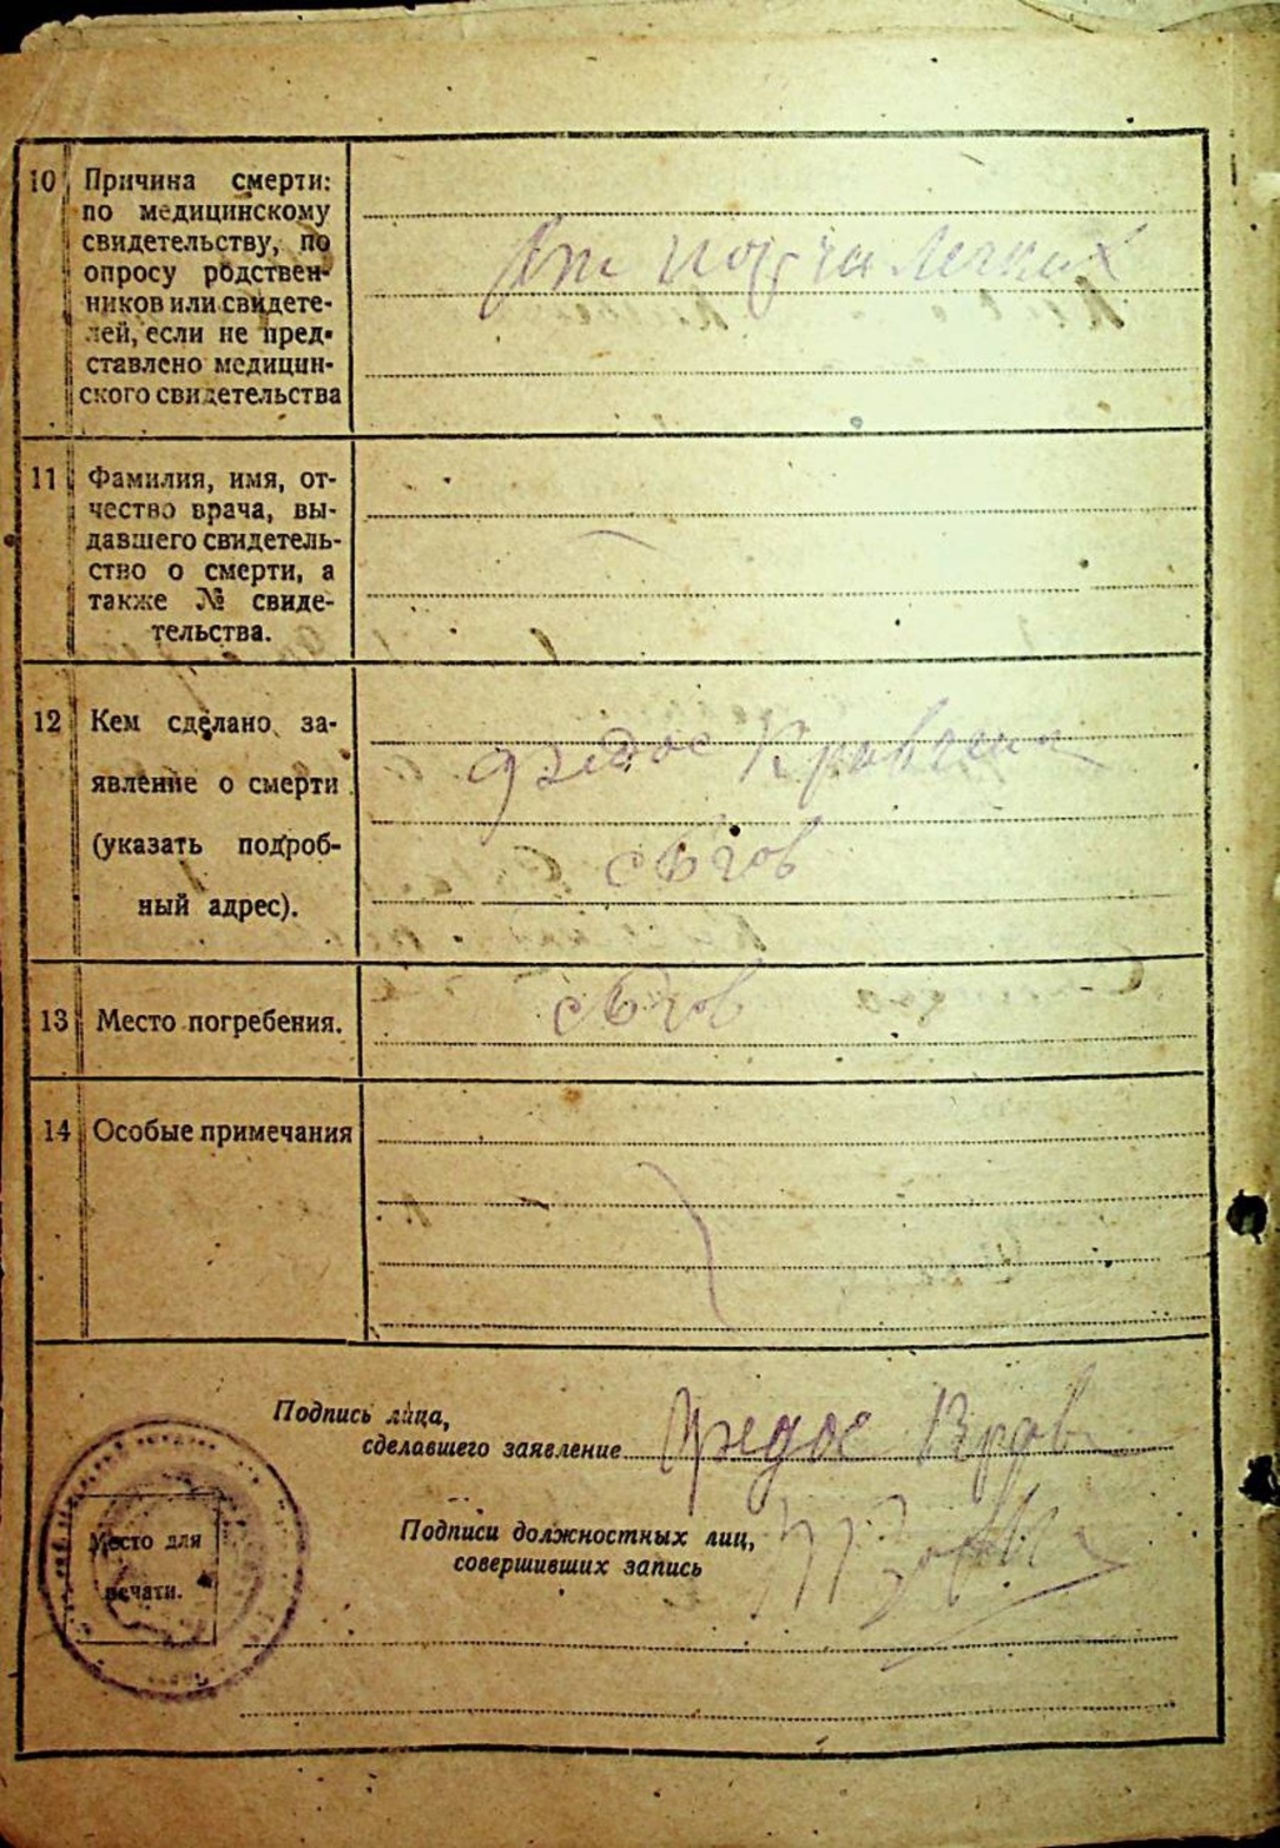 10 Причина смерти:
по медицинскому
свидетельству, по
опросу родствен-
ников или свидете-
лей, если не пред-
ставлено медицин-
ского свидетельства
От порча легких
11 Фамилия, имя, от-
чество врача, вы-
давшего свидетель-
ство о смерти, а
также № свиде-
тельства.
12 Кем сделано за-
явление о смерти
(указать подроб-
ный адрес).
Федос
13 Место погребения.
14 Особые примечания
Подпись лица,
сделавшего заявление Федос
Подписи должностных лиц,
совершивших запись
Место для
печати.